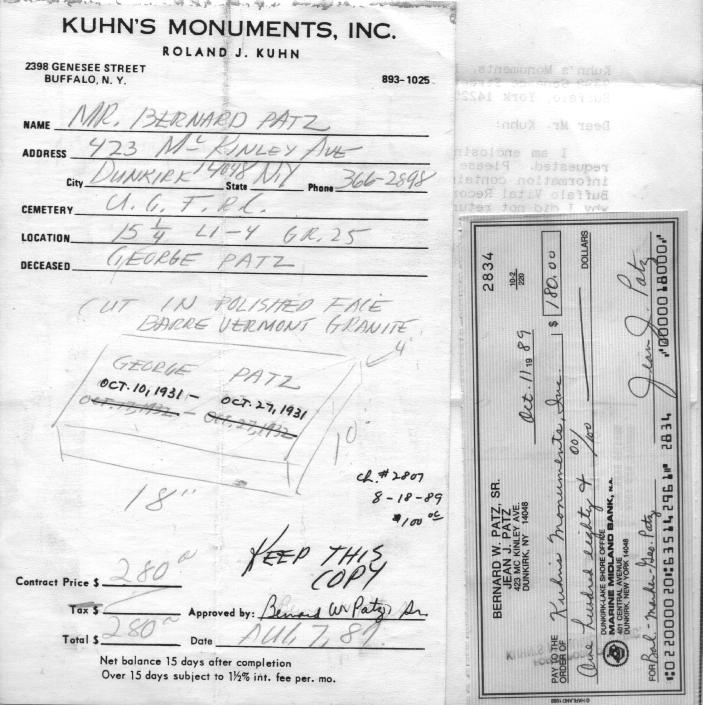 KUHN'S MONUMENTS, INC.
ROLAND J. KUHN
2398 GENESEE STREET
BUFFALO, N. Y.
893-1025
NAME MR. BERNARD PATZ
ADDRESS 423 McKINLEY AVE
City DUNKIRK 14048 State NY Phone 366-2898
CEMETERY U. G. F. R. C.
LOCATION 15 1/4 L1-4 GR. 25
DECEASED GEORGE PATZ
CUT IN POLISHED FACE
BARRE VERMONT GRANITE
4
GEORGE PATZ
OCT. 10, 1931 - OCT. 27, 1931
OCT. 17, 1932 - OCT. 27, 1932
10
18"
ch. #2807
8-18-89
$100 00
KEEP THIS
COPY
Contract Price $ 280 00
Tax $
Approved by: Bernard W. Patz, Sr.
Total $ 280 00 Date AUG 7, 89
Net balance 15 days after completion
Over 15 days subject to 1½% int. fee per. mo.
Kuhn's Monuments,
Dear Mr. Kuhn:
I am enclosing
requested. Please
information
Buffalo Vital
why I did not
BERNARD W. PATZ, SR.
JEAN J. PATZ
423 MC KINLEY AVE.
DUNKIRK, NY 14048
2834
10-2
220
Oct. 11 19 89
PAY TO THE
ORDER OF Kuhn's Monuments, Inc. $ 180.00
One hundred eighty & 00/100 DOLLARS
DUNKIRK-LAKE SHORE OFFICE
MARINE MIDLAND BANK, N.A.
401 CENTRAL AVENUE
DUNKIRK, NEW YORK 14048
FOR Bal.-Marker-Geo. Patz Jean J. Patz
⑆022000020⑆635142961⑈ 2834 ⑈0000018000⑈
© HARLAND 1982